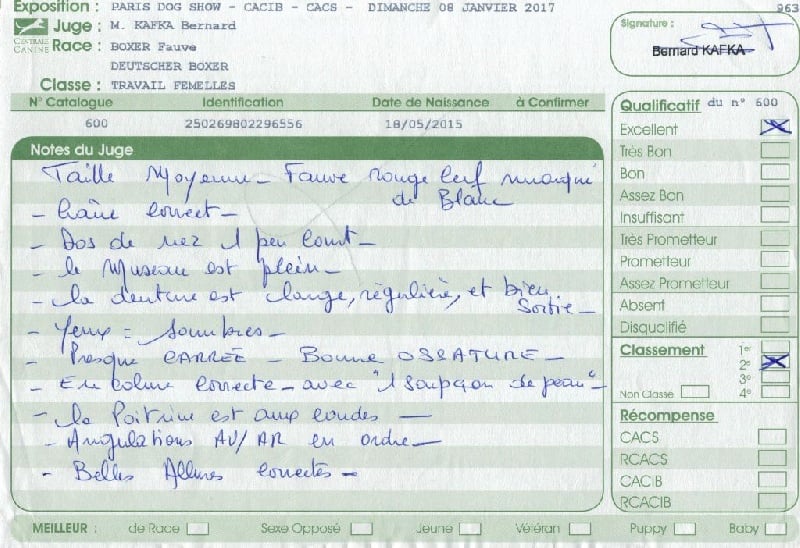 Exposition : PARIS DOG SHOW - CACIB - CACS - DIMANCHE 08 JANVIER 2017
963
Juge : M. KAFKA Bernard
CENTRALE CANINE
Race : BOXER Fauve
DEUTSCHER BOXER
Classe : TRAVAIL FEMELLES
Signature :
Bernard KAFKA
N° Catalogue Identification Date de Naissance à Confirmer
600 250269802296556 18/05/2015
Notes du Juge
Taille Moyenne - Fauve rouge cerf marqué
de Blanc
- Crâne correct -
- Dos de nez 1 peu court -
- le Museau est plein -
- la denture est large, régulière, et bien
sortie -
- Yeux = sombres -
- Presque CARRÉE - Bonne OSSATURE -
- Encolure correcte - avec "1 soupçon de peau" -
- la Poitrine est aux coudes -
- Angulations AV/AR en ordre -
- Belles Allures correctes -
Qualificatif du n° 600
Excellent
Très Bon
Bon
Assez Bon
Insuffisant
Très Prometteur
Prometteur
Assez Prometteur
Absent
Disqualifié
Classement 1er
2e
3e
Non Classé 4e
Récompense
CACS
RCACS
CACIB
RCACIB
MEILLEUR : de Race Sexe Opposé Jeune Vétéran Puppy Baby